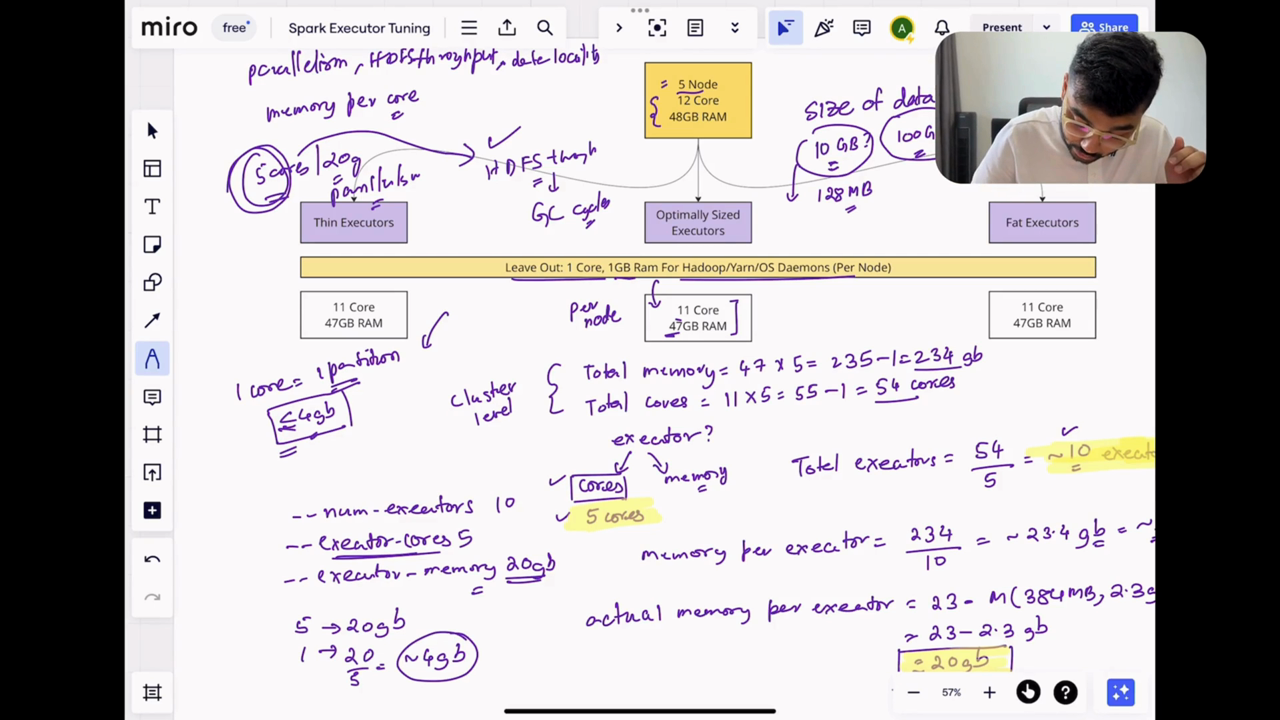 miro free Spark Executor Tuning Present Share
A
parallelism, HDFS throughput, data locality
memory per core
5 Node
12 Core
48GB RAM
size of data
10 GB?
128 MB
5 cores | 20g
parallelism
HDFS through
GC cycles
Thin Executors
Optimally Sized
Executors
Fat Executors
Leave Out: 1 Core, 1GB Ram For Hadoop/Yarn/OS Daemons (Per Node)
11 Core
47GB RAM
per
node
11 Core
47GB RAM
11 Core
47GB RAM
1 core = 1 partition
≤ 4gb
cluster
level
Total memory = 47 x 5 = 235 - 1 = 234 gb
Total cores = 11 x 5 = 55 - 1 = 54 cores
executor?
cores
memory
5 cores
Total executors = 54/5 = ~10
-- num-executors 10
-- executor-cores 5
-- executor-memory 20gb
memory per executor = 234/10 = ~ 23.4 gb = ~
actual memory per executor = 23 - M(384MB, 2.3g
≈ 23 - 2.3 gb
= 20gb
5 → 20gb
1 → 20/5 = ~4gb
57%